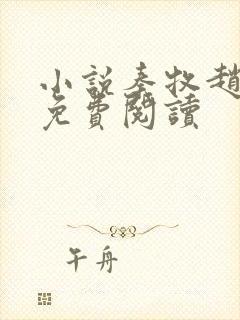 小說秦牧趙
免費閱讀
午舟